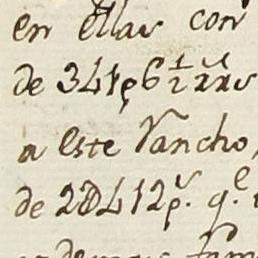 en ellas con
de 341p 6½ rrs
a este Rancho,
de 20412p.s q.e